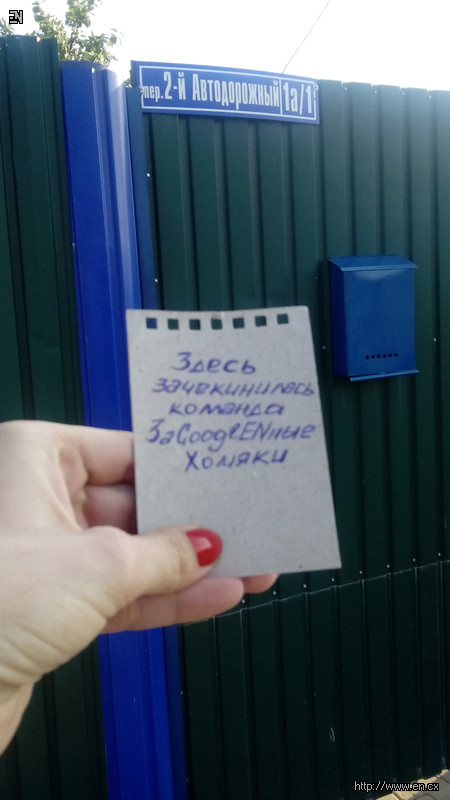 EN
пер. 2-й Автодорожный 1а/1
Здесь
зачекинилась
команда
ЗаGooglENные
Хомяки
http://www.en.cx